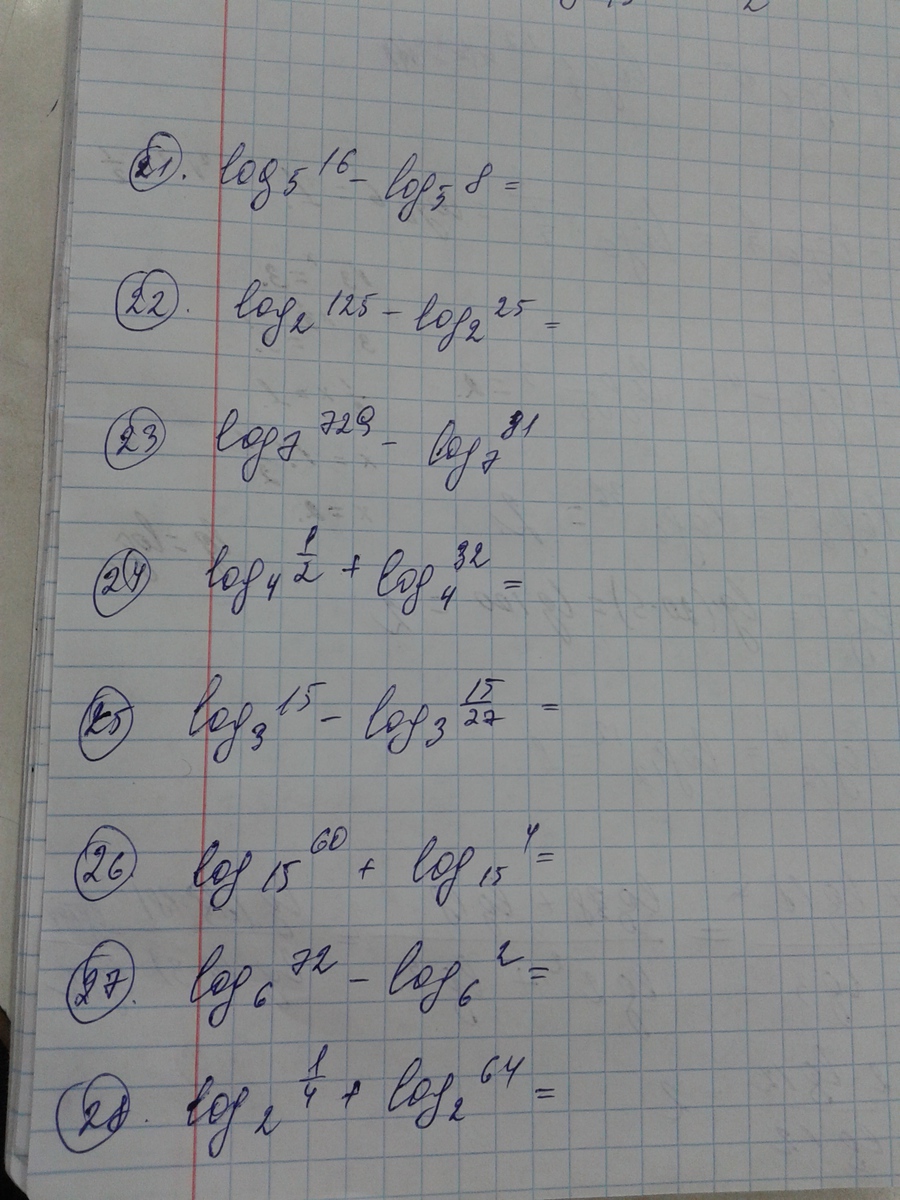 21. log₅ 16 - log₅ 8 =
22. log₂ 125 - log₂ 25 =
23 log₇ 729 - log₇
24 log₄ 1/2 + log₄ 32 =
25 log₃ 15 - log₃ 15/27 =
26 log₁₅ 60 + log₁₅ 4 =
27. log₆ 72 - log₆ 2 =
28. log₂ 1/4 + log₂ 64 =